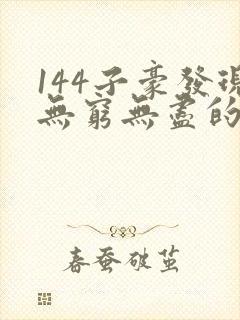 144子豪發現
無窮無盡的
春蚕破茧